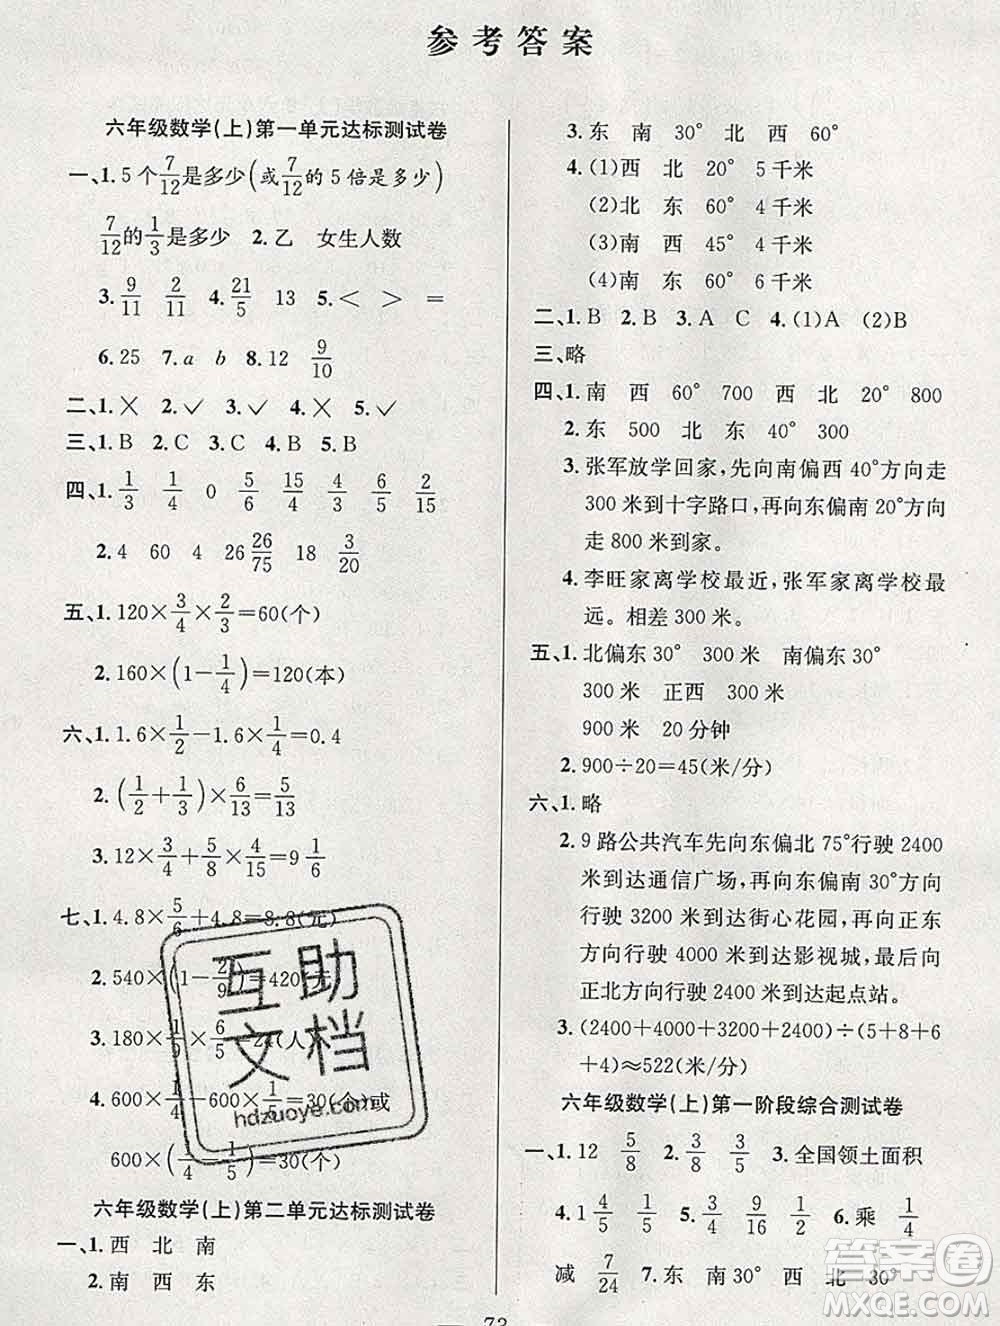 参考答案
六年级数学(上)第一单元达标测试卷
一、1. 5个7/12是多少(或7/12的5倍是多少)
7/12的1/3是多少 2. 乙 女生人数
3. 9/11 2/11 4. 21/5 13 5. < > =
6. 25 7. a b 8. 12 9/10
二、1. × 2. ✓ 3. ✓ 4. × 5. ✓
三、1. B 2. C 3. C 4. B 5. B
四、1. 1/3 1/4 0 5/6 15/4 4/5 6/5 2/15
2. 4 60 4 26 26/75 18 3/20
五、1. 120×3/4×2/3=60(个)
2. 160×(1-1/4)=120(本)
六、1. 1.6×1/2-1.6×1/4=0.4
2. (1/2+1/3)×6/13=5/13
3. 12×3/4+5/8×4/15=9 1/6
七、1. 4.8×5/6+4.8=8.8(元)
2. 540×(1-2/9)=420(元
3. 180×1/9×6/5=24(人)
4. 600×1/4-600×1/5=30(个)或
600×(1/4-1/5)=30(个)
六年级数学(上)第二单元达标测试卷
一、1. 西 北 南
2. 南 西 东
3. 东 南 30° 北 西 60°
4. (1)西 北 20° 5千米
(2)北 东 60° 4千米
(3)南 西 45° 4千米
(4)南 东 60° 6千米
二、1. B 2. B 3. A C 4. (1)A (2)B
三、略
四、1. 南 西 60° 700 西 北 20° 800
2. 东 500 北 东 40° 300
3. 张军放学回家,先向南偏西40°方向走
300米到十字路口,再向东偏南20°方向
走800米到家。
4. 李旺家离学校最近,张军家离学校最
远。相差300米。
五、1. 北偏东30° 300米 南偏东30°
300米 正西 300米
900米 20分钟
2. 900÷20=45(米/分)
六、1. 略
2. 9路公共汽车先向东偏北75°行驶2400
米到达通信广场,再向东偏南30°方向
行驶3200米到达街心花园,再向正东
方向行驶4000米到达影视城,再向
正北方向行驶2400米到达起点站。
3. (2400+4000+3200+2400)÷(5+8+6
+4)≈522(米/分)
六年级数学(上)第一阶段综合测试卷
一、1. 12 5/8 2. 3/8 3/8 3. 全国领土面积
4. 1 4/5 1/5 5. 3/4 9/16 6. 乘 1/4
减 7/24 7. 东 南30° 西 北 30°
73
互助
文档
hdzuoye.com
答案圈
MXQE.COM